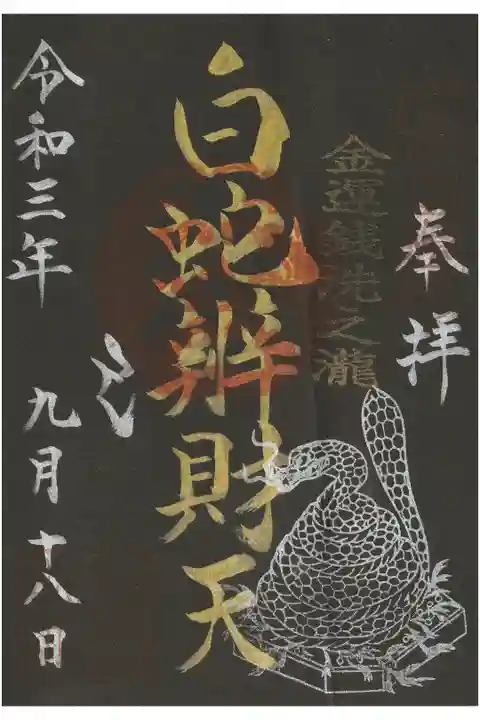 奉拝
金運銭洗之瀧
白蛇辨財天
令和三年 九月十八日